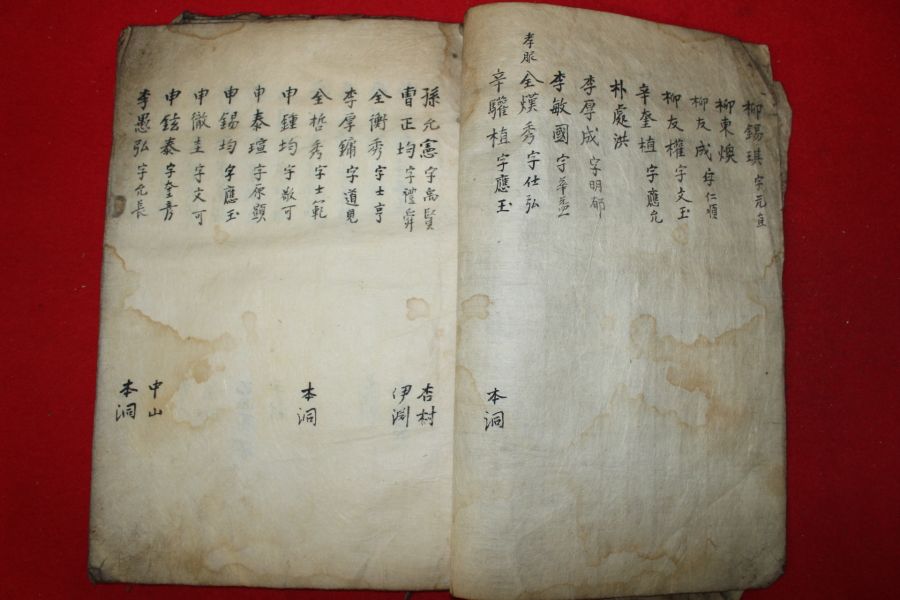 柳錫璂 字元直
柳東煥
柳友成 字仁順
柳友權 字文玉
辛奎植 字應允
朴處洪
李厚成 字明郁
李敏國 字華益
孝服 全熯秀 字仕弘
辛驩植 字應玉 本洞
孫允憲 字禹賢 杏村
曺正均 字禮舜 伊淵
全衡秀 字士亨
李厚鏞 字道見
全哲秀 字士範 本洞
申鍾均 字敬可
申泰瑄 字原顯
申錫均 字應玉
申徹圭 字文可
申鉉泰 字奎彦 中山
李愚弘 字允長 本洞